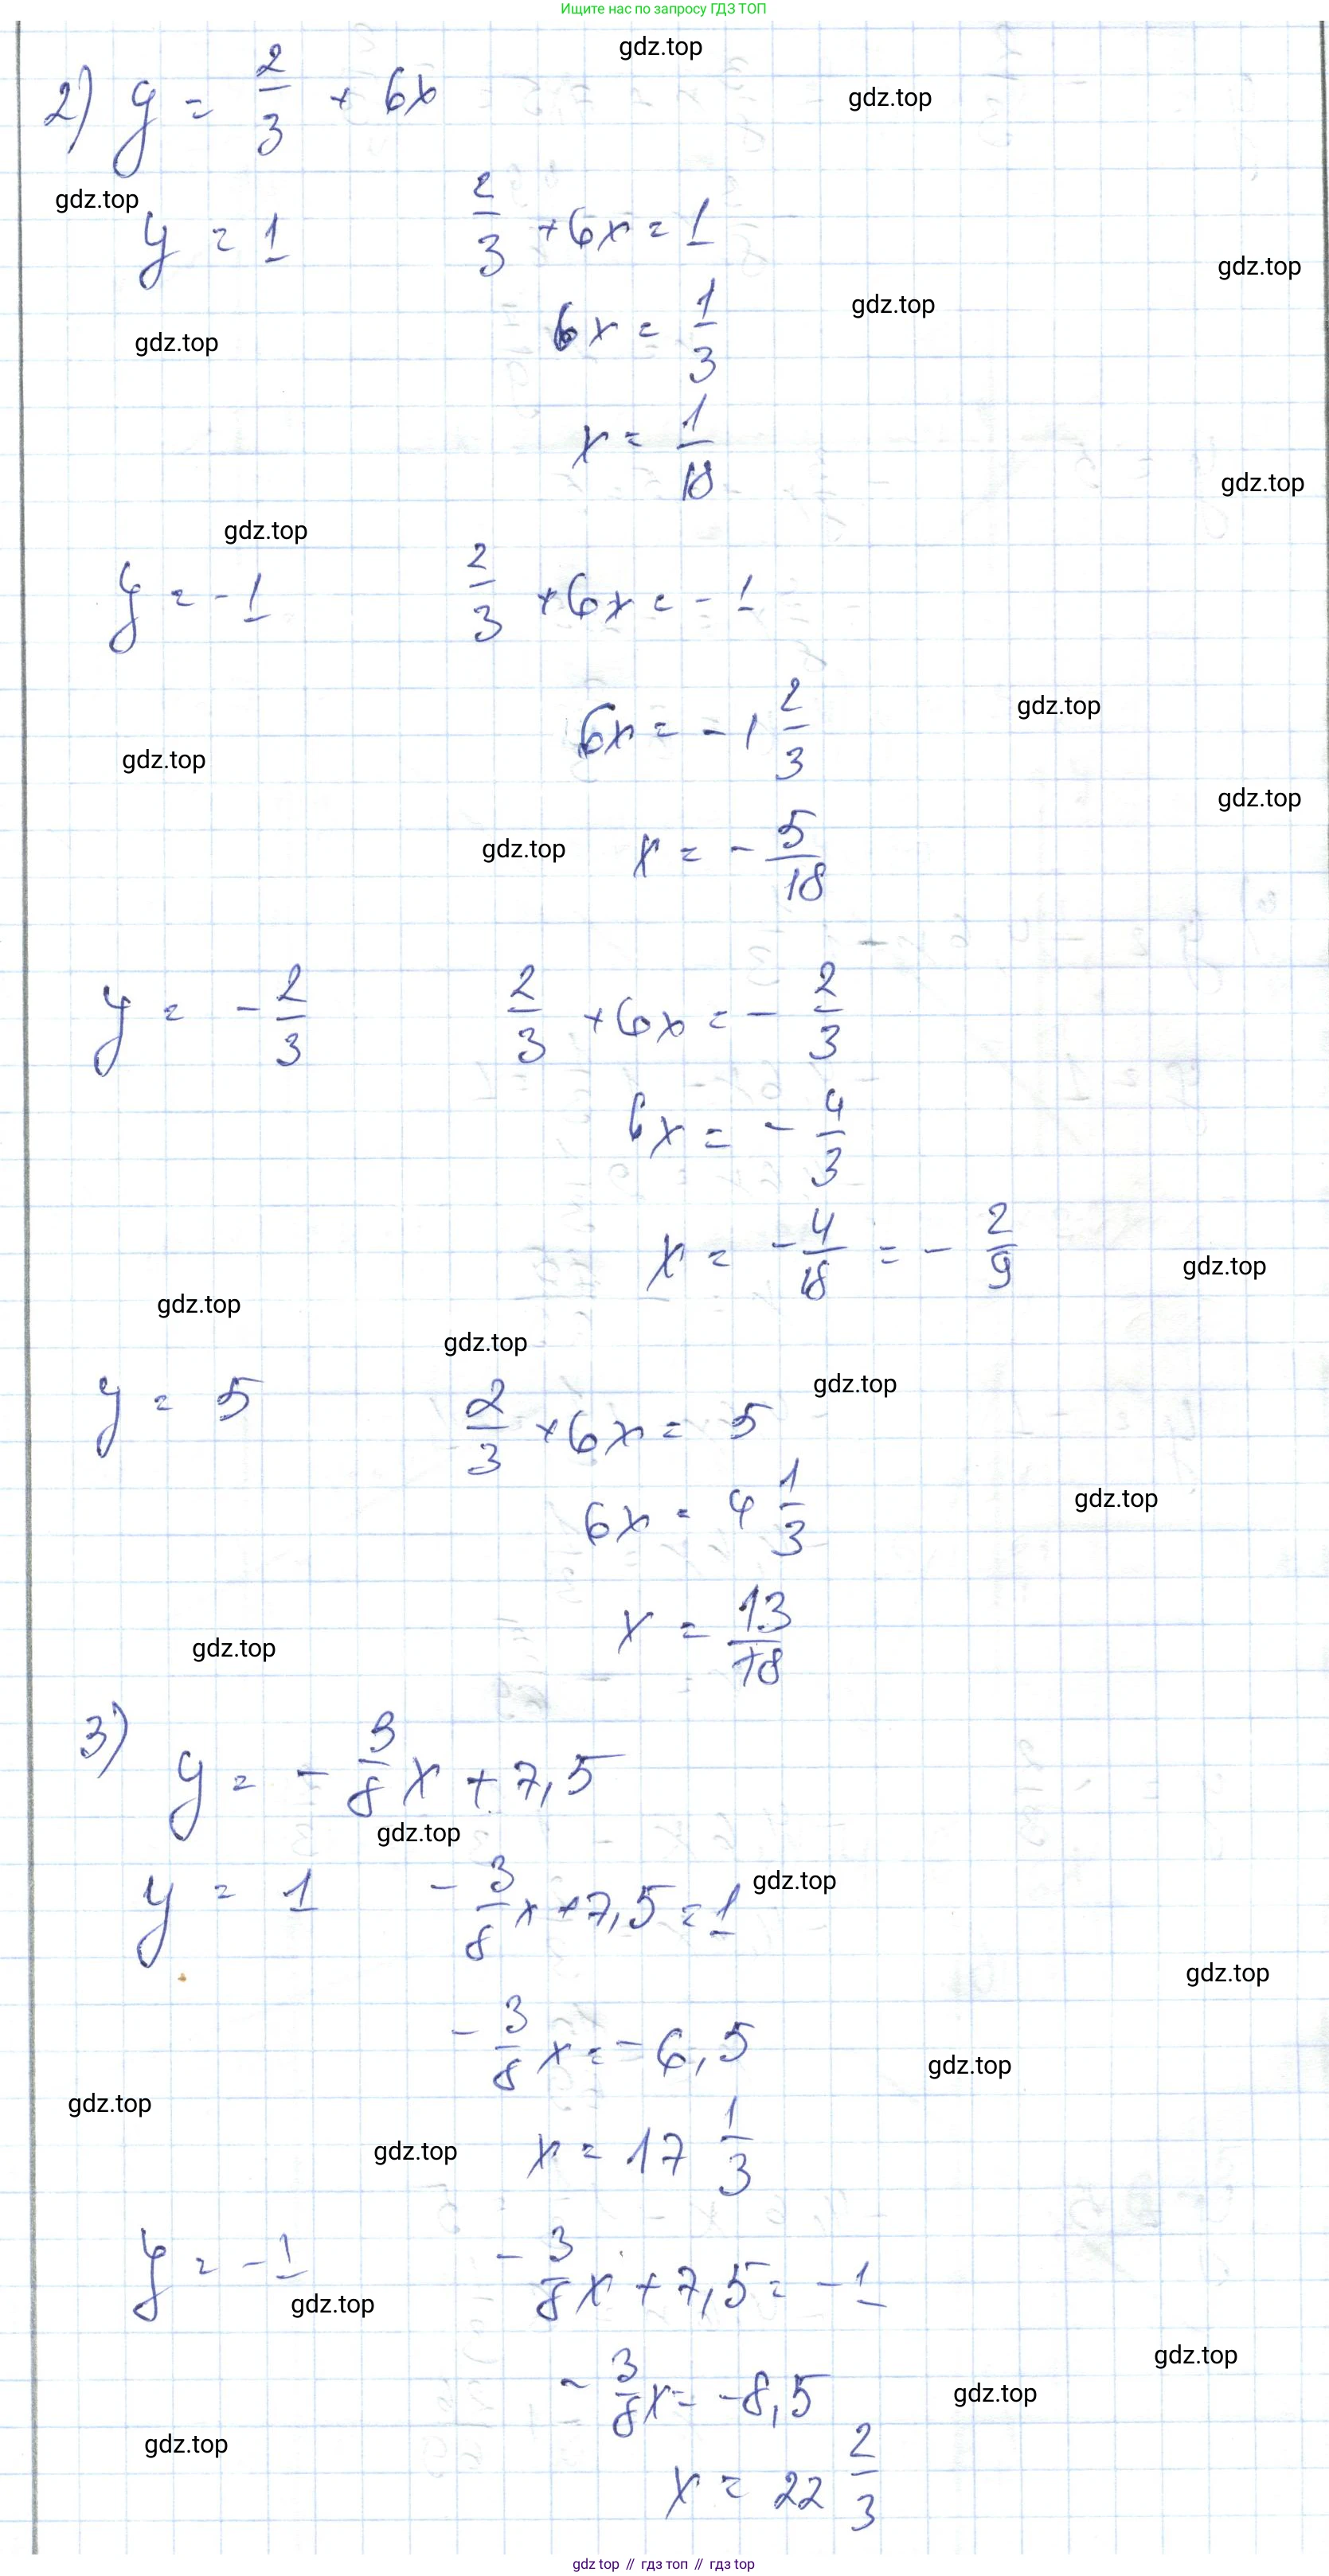 Ищите нас по запросу ГДЗ ТОП
gdz.top
2) y = 2/3 + 6x
gdz.top
gdz.top
y = 1    2/3 + 6x = 1
gdz.top
6x = 1/3
gdz.top
gdz.top
x = 1/18
gdz.top
gdz.top
y = -1    2/3 + 6x = -1
6x = -1 2/3
gdz.top
gdz.top
gdz.top
gdz.top
x = -5/18
y = -2/3    2/3 + 6x = -2/3
6x = -4/3
x = -4/18 = -2/9
gdz.top
gdz.top
gdz.top
gdz.top
y = 5    2/3 + 6x = 5
6x = 4 1/3
gdz.top
x = 13/18
gdz.top
3) y = -3/8 x + 7,5
gdz.top
y = 1    -3/8 x + 7,5 = 1
gdz.top
gdz.top
-3/8 x = -6,5
gdz.top
gdz.top
gdz.top
x = 17 1/3
y = -1    -3/8 x + 7,5 = -1
gdz.top
gdz.top
-3/8 x = -8,5
gdz.top
gdz.top
x = 22 2/3
gdz top // гдз топ // gdz top